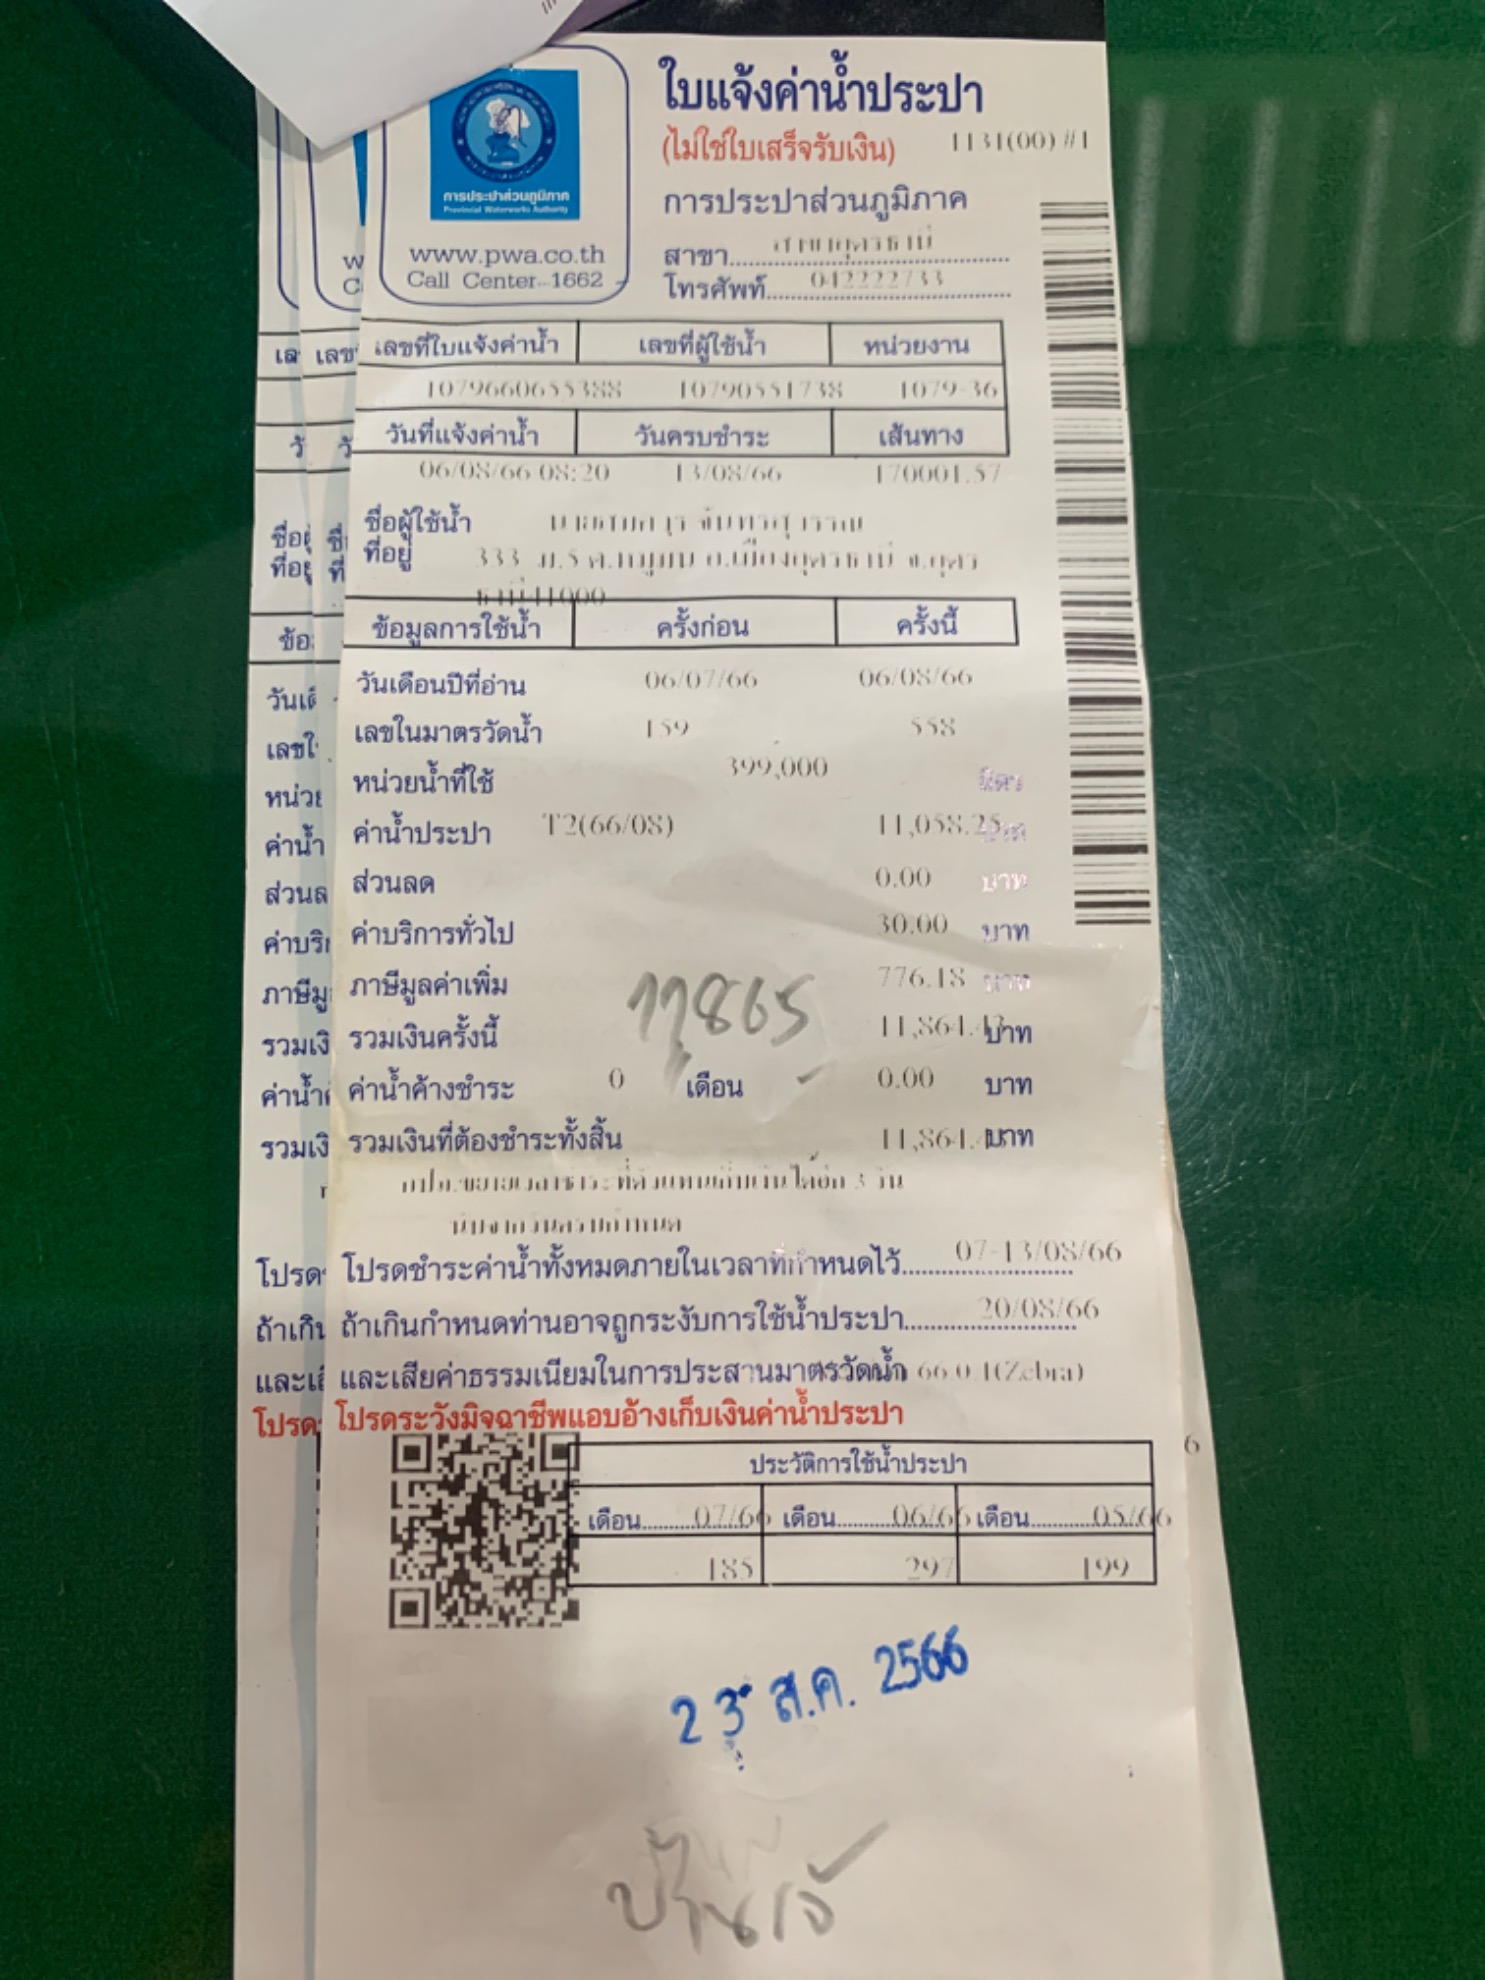 ใบแจ้งค่าน้ำประปา
(ไม่ใช่ใบเสร็จรับเงิน) 1131(00) #1
การประปาส่วนภูมิภาค
Provincial Waterworks Authority
www.pwa.co.th
Call Center 1662
การประปาส่วนภูมิภาค
สาขา สาขาอุดรธานี
โทรศัพท์ 042222733
เลขที่ใบแจ้งค่าน้ำ เลขที่ผู้ใช้น้ำ หน่วยงาน
1079660655388 10790551738 1079-36
วันที่แจ้งค่าน้ำ วันครบชำระ เส้นทาง
06/08/66 08:20 13/08/66 170001.57
ชื่อผู้ใช้น้ำ
ที่อยู่ 333 ม.5 อ.เมืองอุดรธานี จ.อุดร
ธานี 41000
ข้อมูลการใช้น้ำ ครั้งก่อน ครั้งนี้
วันเดือนปีที่อ่าน 06/07/66 06/08/66
เลขในมาตรวัดน้ำ 159 558
หน่วยน้ำที่ใช้ 399,000 ลิตร
ค่าน้ำประปา T2(66/08) 11,058.25 บาท
ส่วนลด 0.00 บาท
ค่าบริการทั่วไป 30.00 บาท
ภาษีมูลค่าเพิ่ม 776.18 บาท
11865
รวมเงินครั้งนี้ 11,864.43 บาท
ค่าน้ำค้างชำระ 0 เดือน 0.00 บาท
รวมเงินที่ต้องชำระทั้งสิ้น 11,864. บาท
กปภ.ขยายเวลาชำระที่ตัวแทนเก็บเงินได้อีก 3 วัน
นับจากวันครบกำหนด
โปรดชำระค่าน้ำทั้งหมดภายในเวลาที่กำหนดไว้ 07-13/08/66
ถ้าเกินกำหนดท่านอาจถูกระงับการใช้น้ำประปา 20/08/66
และเสียค่าธรรมเนียมในการประสานมาตรวัดน้ำ 66.0.1(Zebra)
โปรดระวังมิจฉาชีพแอบอ้างเก็บเงินค่าน้ำประปา
ประวัติการใช้น้ำประปา
เดือน 07/66 เดือน 06/66 เดือน 05/66
185 297 199
23 ส.ค. 2566